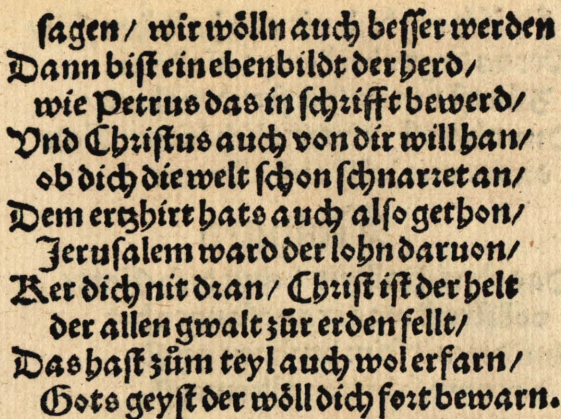 sagen/ wir wölln auch besser werden
Dann bist ein ebenbildt der herd/
wie Petrus das in schrifft bewerd/
Vnd Christus auch von dir will han/
ob dich die welt schon schnarret an/
Dem ertzhirt hats auch also gethon/
Jerusalem ward der lohn daruon/
Ker dich nit dran/ Christ ist der helt
der allen gwalt zůr erden fellt/
Das hast zům teyl auch wol erfarn/
Gots geyst der wöll dich fort bewarn.